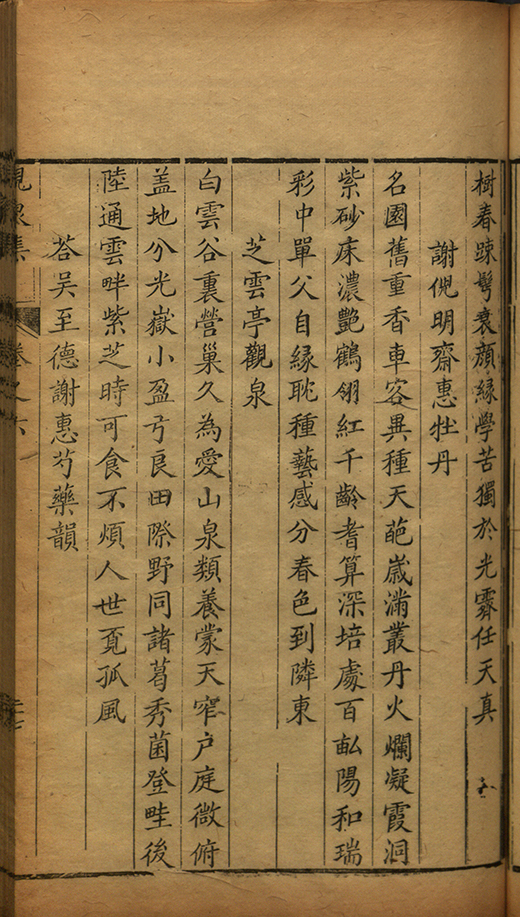 樹春踈髩衰顔緣學苦獨於光霽任天真
謝倪明齋惠牡丹
名園舊重香車客異種天葩嵗滿叢丹火爛凝霞洞
紫砂床濃艷鶴翎紅千齡耆算深培處百畝陽和瑞
彩中單父自緣耽種藝感分春色到隣東
芝雲亭觀泉
白雲谷裏營巢久為愛山泉類養蒙天窄户庭微俯
盖地分光嶽小盈亏良田際野同諸葛秀菌登畦後
陸通雲畔紫芝時可食不煩人世覔孤風
荅吴至德謝惠芍藥韻
峴泉集 卷之六